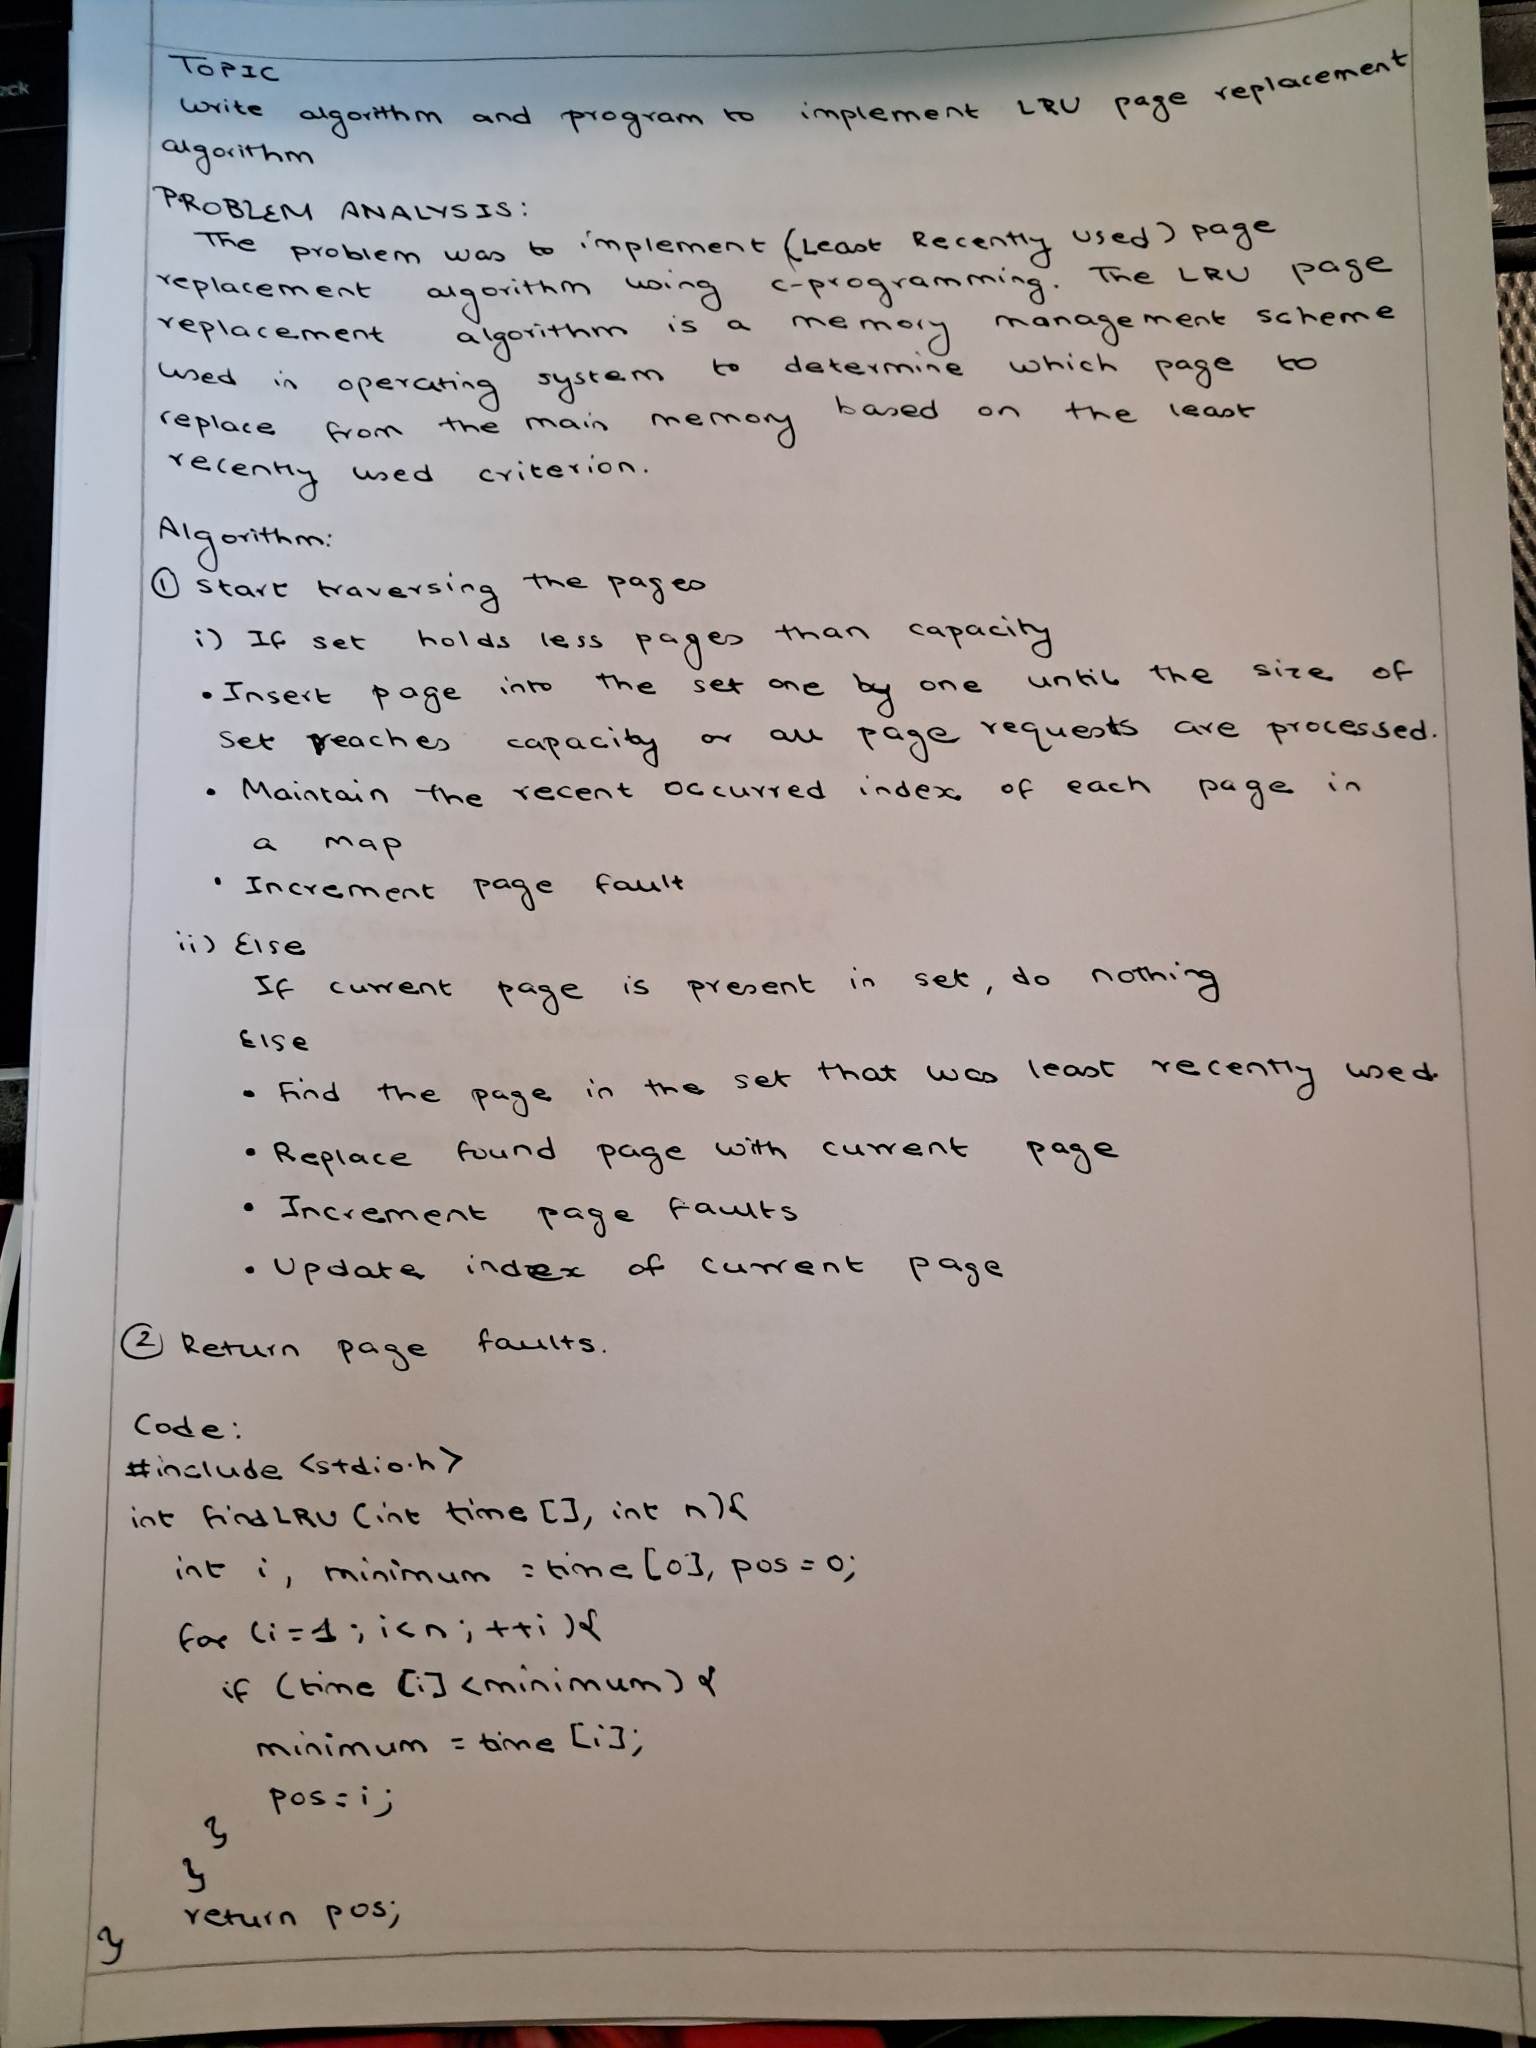 TOPIC
Write algorithm and program to implement LRU page replacement
algorithm
PROBLEM ANALYSIS:
The problem was to implement (Least Recently Used) page
replacement algorithm using c-programming. The LRU page
replacement algorithm is a memory management scheme
used in operating system to determine which page to
replace from the main memory based on the least
recently used criterion.
Algorithm:
① Start traversing the pages
i) If set holds less pages than capacity
• Insert page into the set one by one until the size of
set reaches capacity or all page requests are processed.
• Maintain the recent occurred index of each page in
a map
• Increment page fault
ii) Else
If current page is present in set, do nothing
Else
• Find the page in the set that was least recently used
• Replace found page with current page
• Increment page faults
• Update index of current page
② Return page faults.
Code:
#include <stdio.h>
int findLRU (int time [], int n){
int i, minimum = time [0], pos = 0;
for (i=1; i<n; ++i){
if (time [i] <minimum) {
minimum = time [i];
pos = i;
}
}
return pos;
}